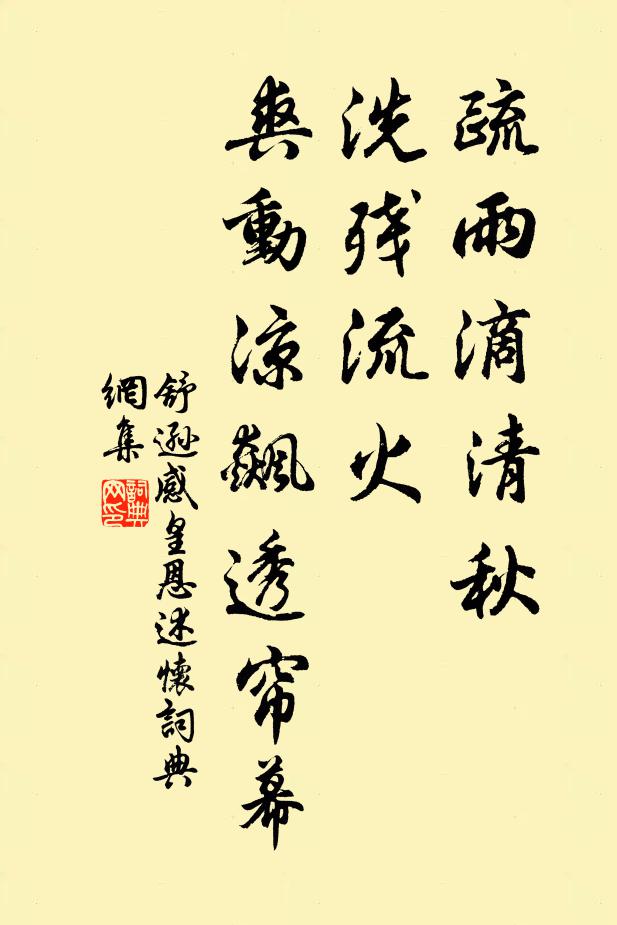 疏雨滴清秋
洗残流火
爽動涼飆透帘幕
舒遜感皇恩述懷詞典
網集
詞典
网印